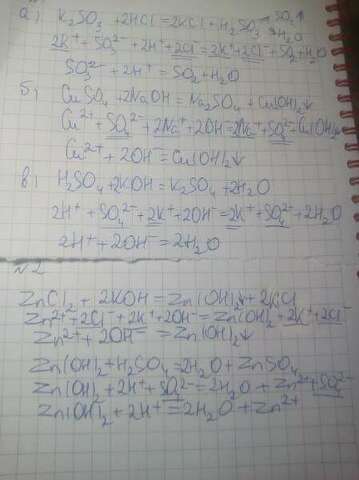 а) K₂SO₃ + 2HCl = 2KCl + H₂SO₃ → SO₂↑
H₂O
2K⁺ + SO₃²⁻ + 2H⁺ + 2Cl⁻ = 2K⁺ + 2Cl⁻ + SO₂ + H₂O
SO₃²⁻ + 2H⁺ = SO₂ + H₂O
б) CuSO₄ + 2NaOH = Na₂SO₄ + Cu(OH)₂↓
Cu²⁺ + SO₄²⁻ + 2Na⁺ + 2OH⁻ = 2Na⁺ + SO₄²⁻ + Cu(OH)₂
Cu²⁺ + 2OH⁻ = Cu(OH)₂↓
в) H₂SO₄ + 2KOH = K₂SO₄ + 2H₂O
2H⁺ + SO₄²⁻ + 2K⁺ + 2OH⁻ = 2K⁺ + SO₄²⁻ + 2H₂O
2H⁺ + 2OH⁻ = 2H₂O
№2
ZnCl₂ + 2KOH = Zn(OH)₂↓ + 2KCl
Zn²⁺ + 2Cl⁻ + 2K⁺ + 2OH⁻ = Zn(OH)₂ + 2K⁺ + 2Cl⁻
Zn²⁺ + 2OH⁻ = Zn(OH)₂↓
Zn(OH)₂ + H₂SO₄ = 2H₂O + ZnSO₄
Zn(OH)₂ + 2H⁺ + SO₄²⁻ = 2H₂O + Zn²⁺ + SO₄²⁻
Zn(OH)₂ + 2H⁺ = 2H₂O + Zn²⁺